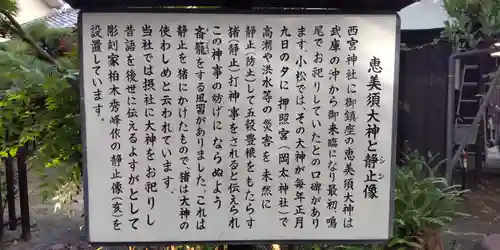 恵美須大神と静止像
シシ
西宮神社に御鎮座の恵美須大神は
武庫の沖から御来臨になり最初、鳴
尾でお祀りしていたとの口碑があり
ます。小松では、その大神が毎年正月
九日の夕に押照宮(岡太神社)で
高潮や洪水等の災害を未然に
静止(防止)して五穀豊穣をもたらす
猪静止打神事をされると伝えられ
この神事の妨げにならぬよう
斎籠をする風習がありました。これは
静止を猪にかけたもので、猪は大神の
使わしめと云われています。
当社では摂社に大神をお祀りし
昔話を後世に伝えるよすがとして
彫刻家柏木秀峰作の静止像(亥)を
設置しています。